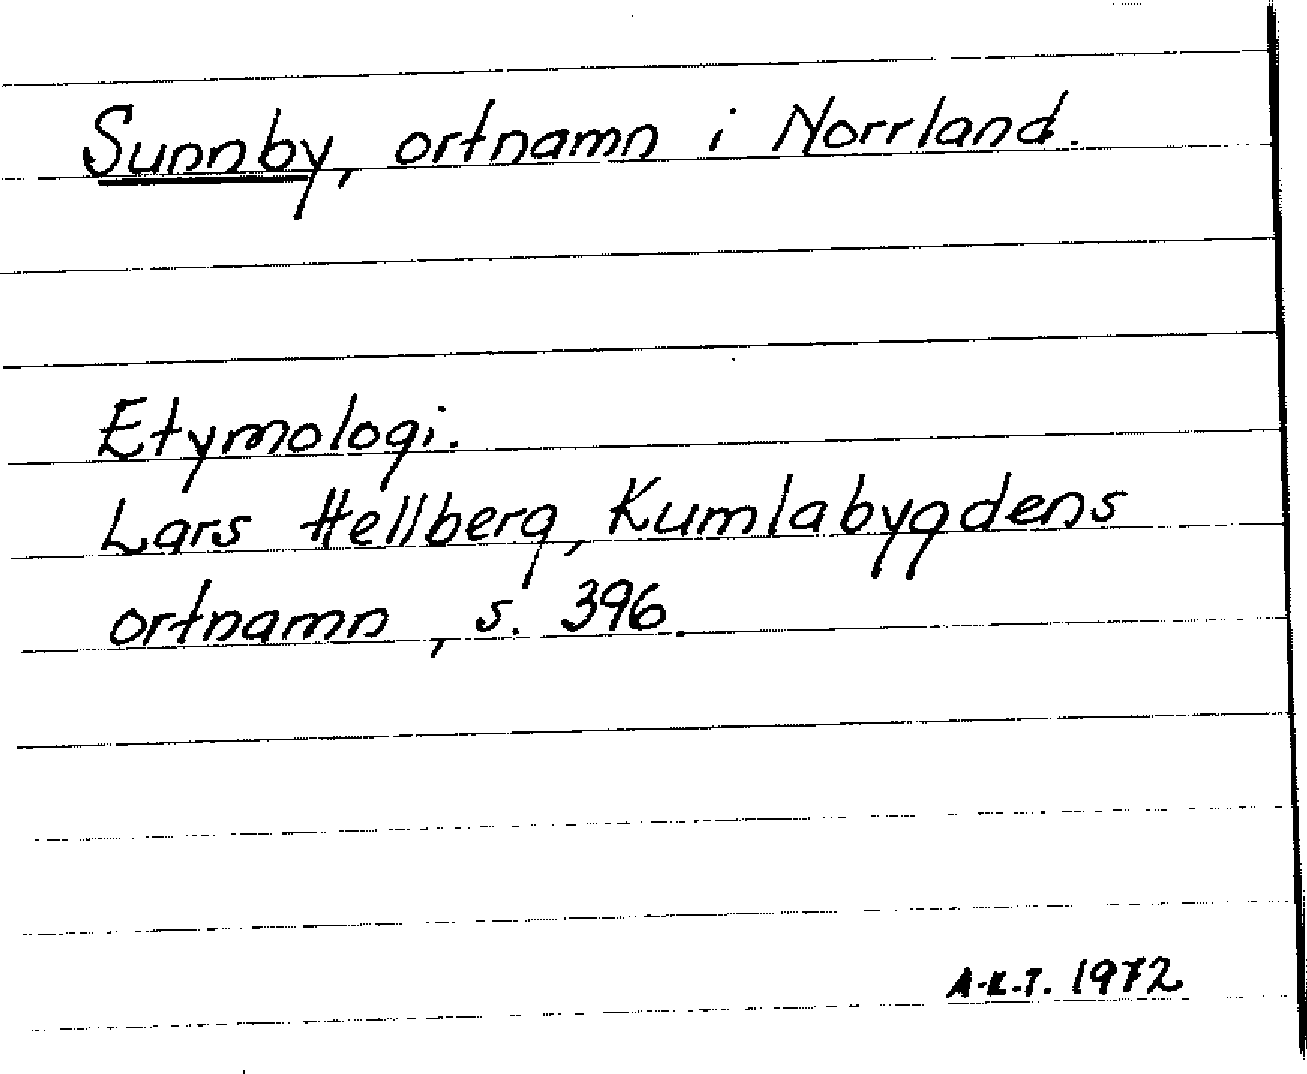 Sunnby, ortnamn i Norrland.
Etymologi.
Lars Hellberg, Kumlabygdens
ortnamn, s. 396.
A-K.T. 1972